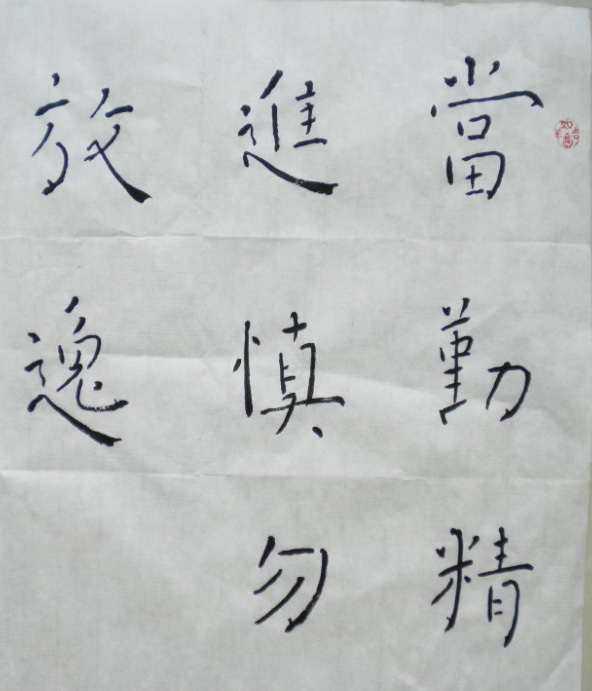 當勤精
進慎勿
放逸